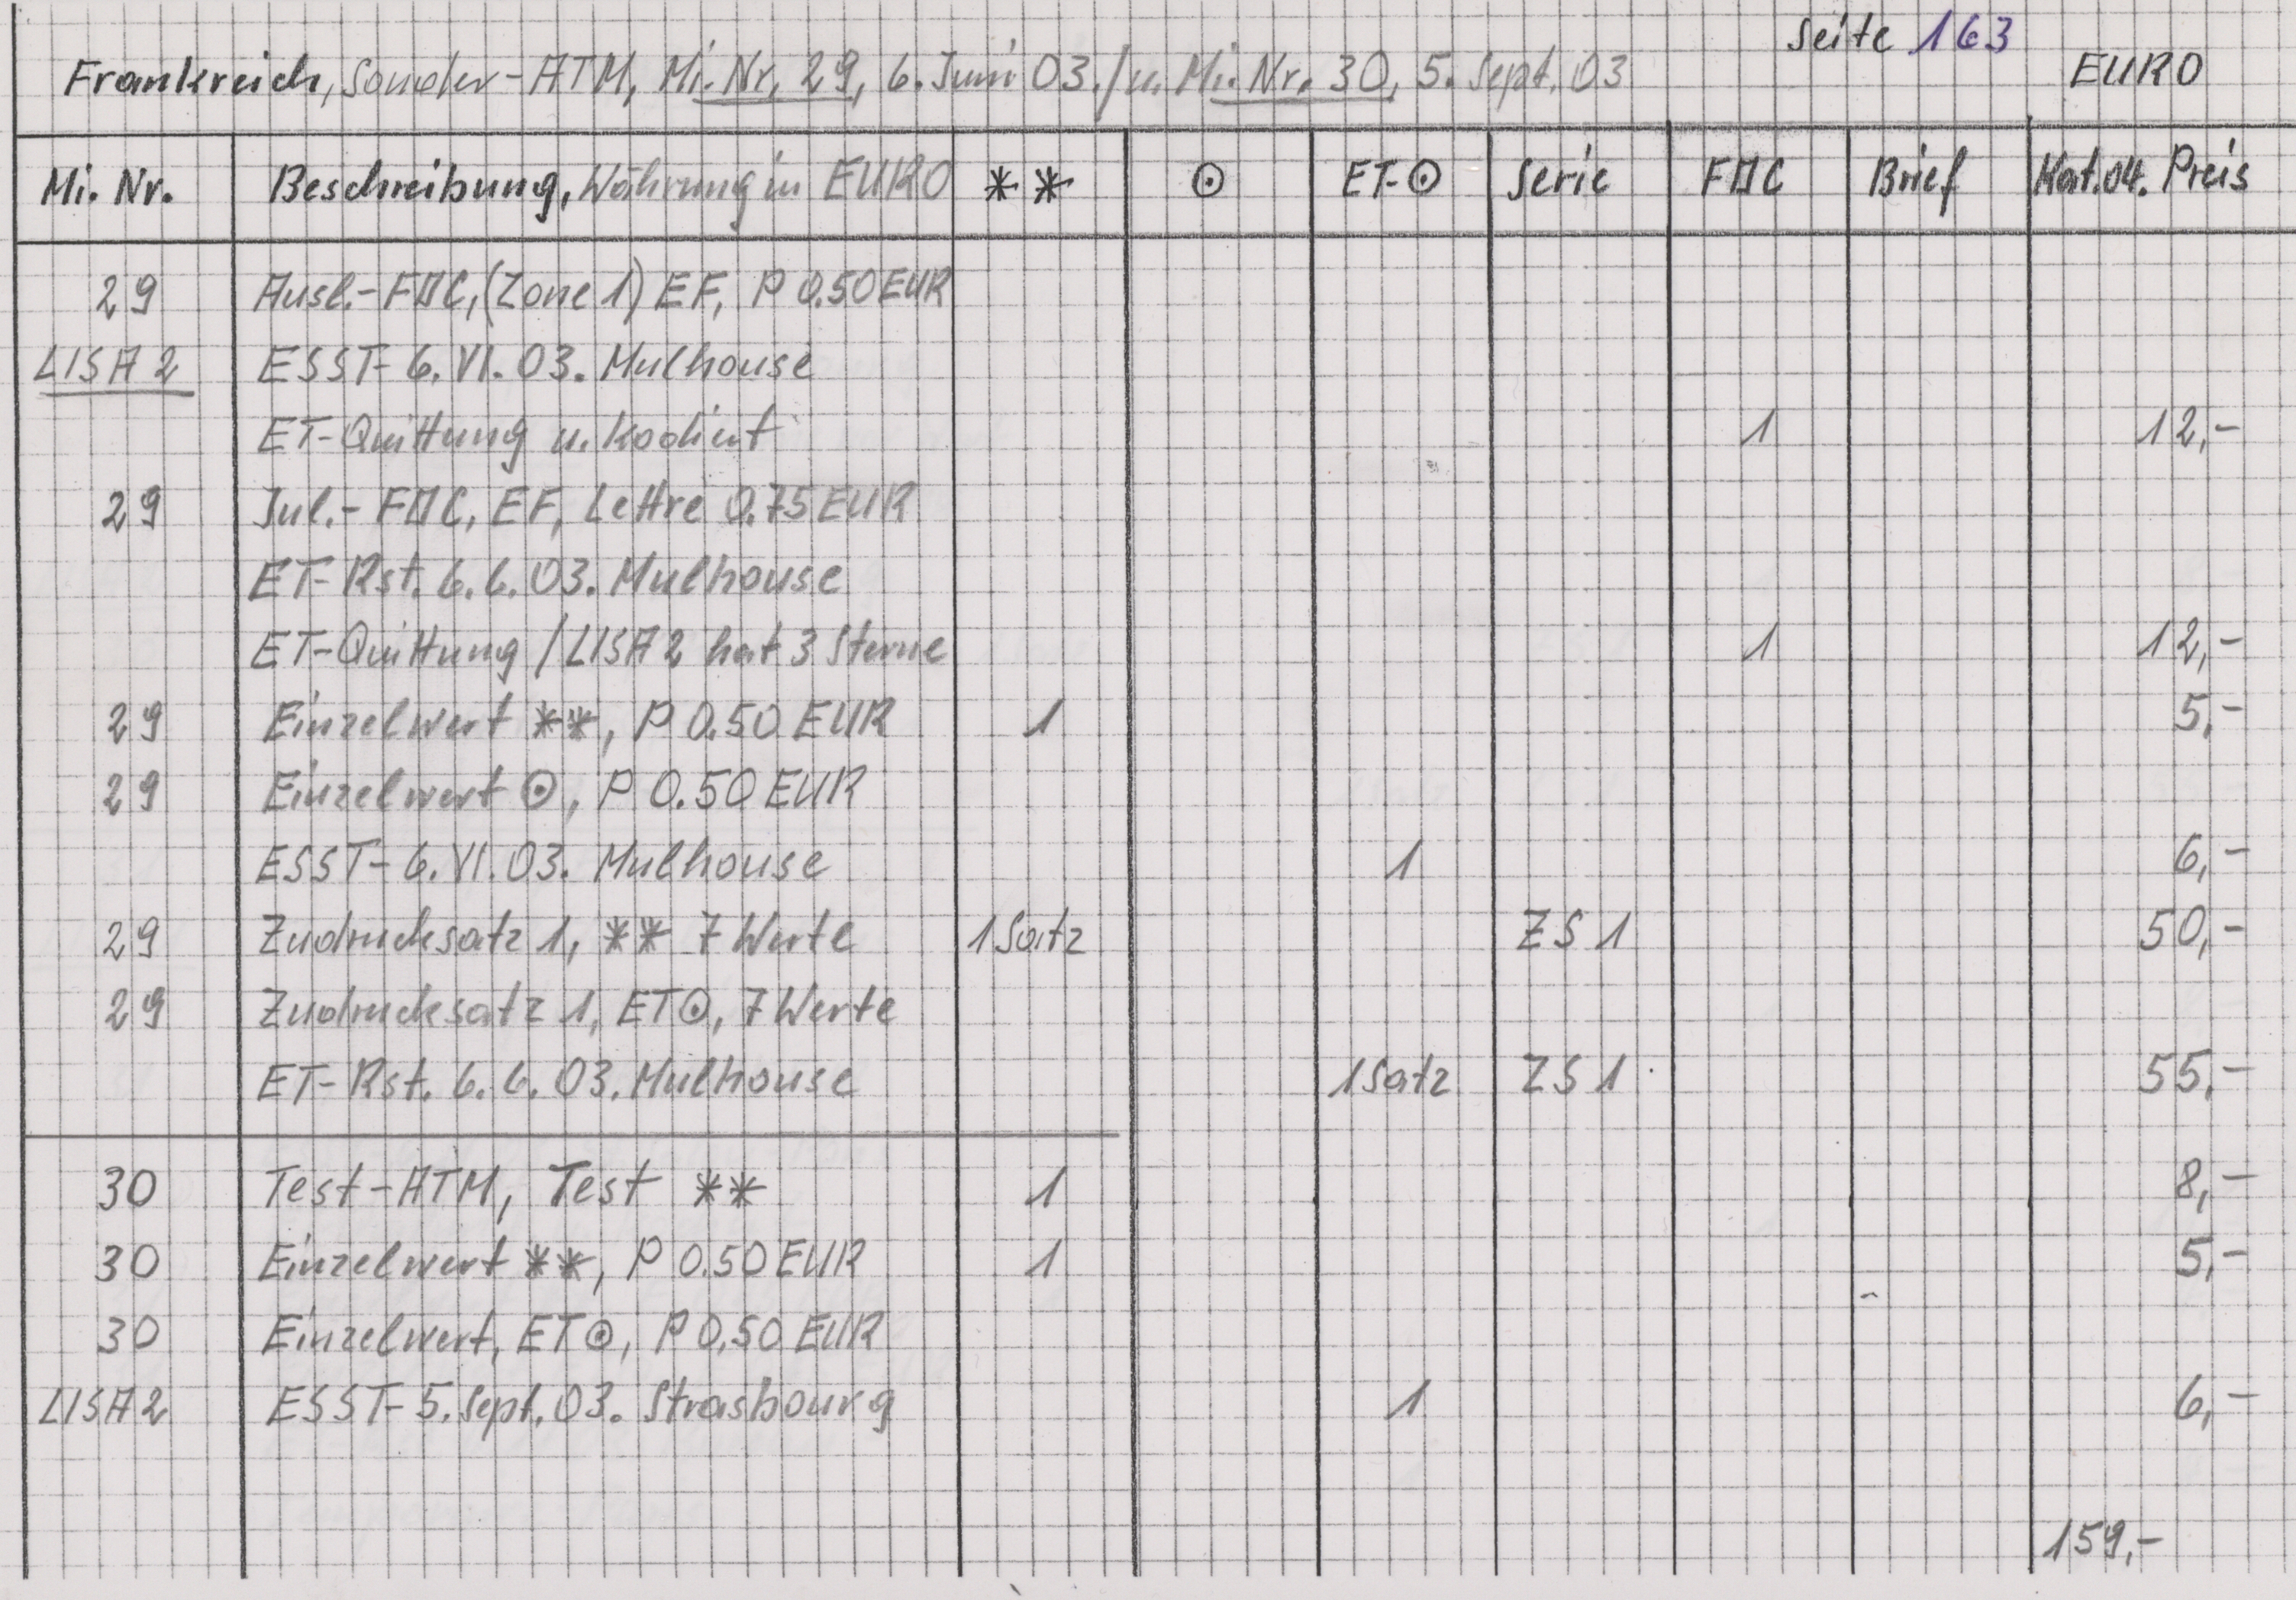 Seite 163
Frankreich, Sonder-ATM, Mi. Nr. 29, 6. Juni 03. / u. Mi. Nr. 30, 5. Sept. 03 EURO
Mi. Nr. Beschreibung, Währung in EURO ** ⊙ ET-⊙ Serie FDC Brief Kat.04. Preis
29 Ausl.-FDC, (Zone 1) EF, P 0.50 EUR
LISA 2 ESST- 6. VI. 03. Mulhouse
ET-Quittung u. kodiert 1 12,-
29 Inl.- FDC, EF, Lettre 0.75 EUR
ET-Rst. 6. 6. 03. Mulhouse
ET-Quittung / LISA 2 hat 3 Sterne 1 12,-
29 Einzelwert **, P 0.50 EUR 1 5,-
29 Einzelwert ⊙, P 0.50 EUR
ESST- 6. VI. 03. Mulhouse 1 6,-
29 Zudrucksatz 1, ** 7 Werte 1 Satz ZS 1 50,-
29 Zudrucksatz 1, ET⊙, 7 Werte
ET-Rst. 6. 6. 03. Mulhouse 1 Satz ZS 1 55,-
30 Test-ATM, Test ** 1 8,-
30 Einzelwert **, P 0.50 EUR 1 5,-
30 Einzelwert, ET⊙, P 0.50 EUR
LISA 2 ESST- 5. Sept. 03. Strasbourg 1 6,-
159,-